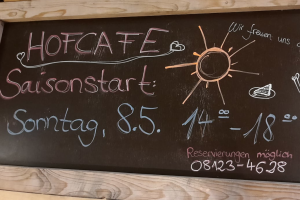 HOFCAFE
Wir freuen uns
Saisonstart:
Sonntag, 8.5. 14⁰⁰ - 18⁰⁰
Reservierungen möglich
08123-4628